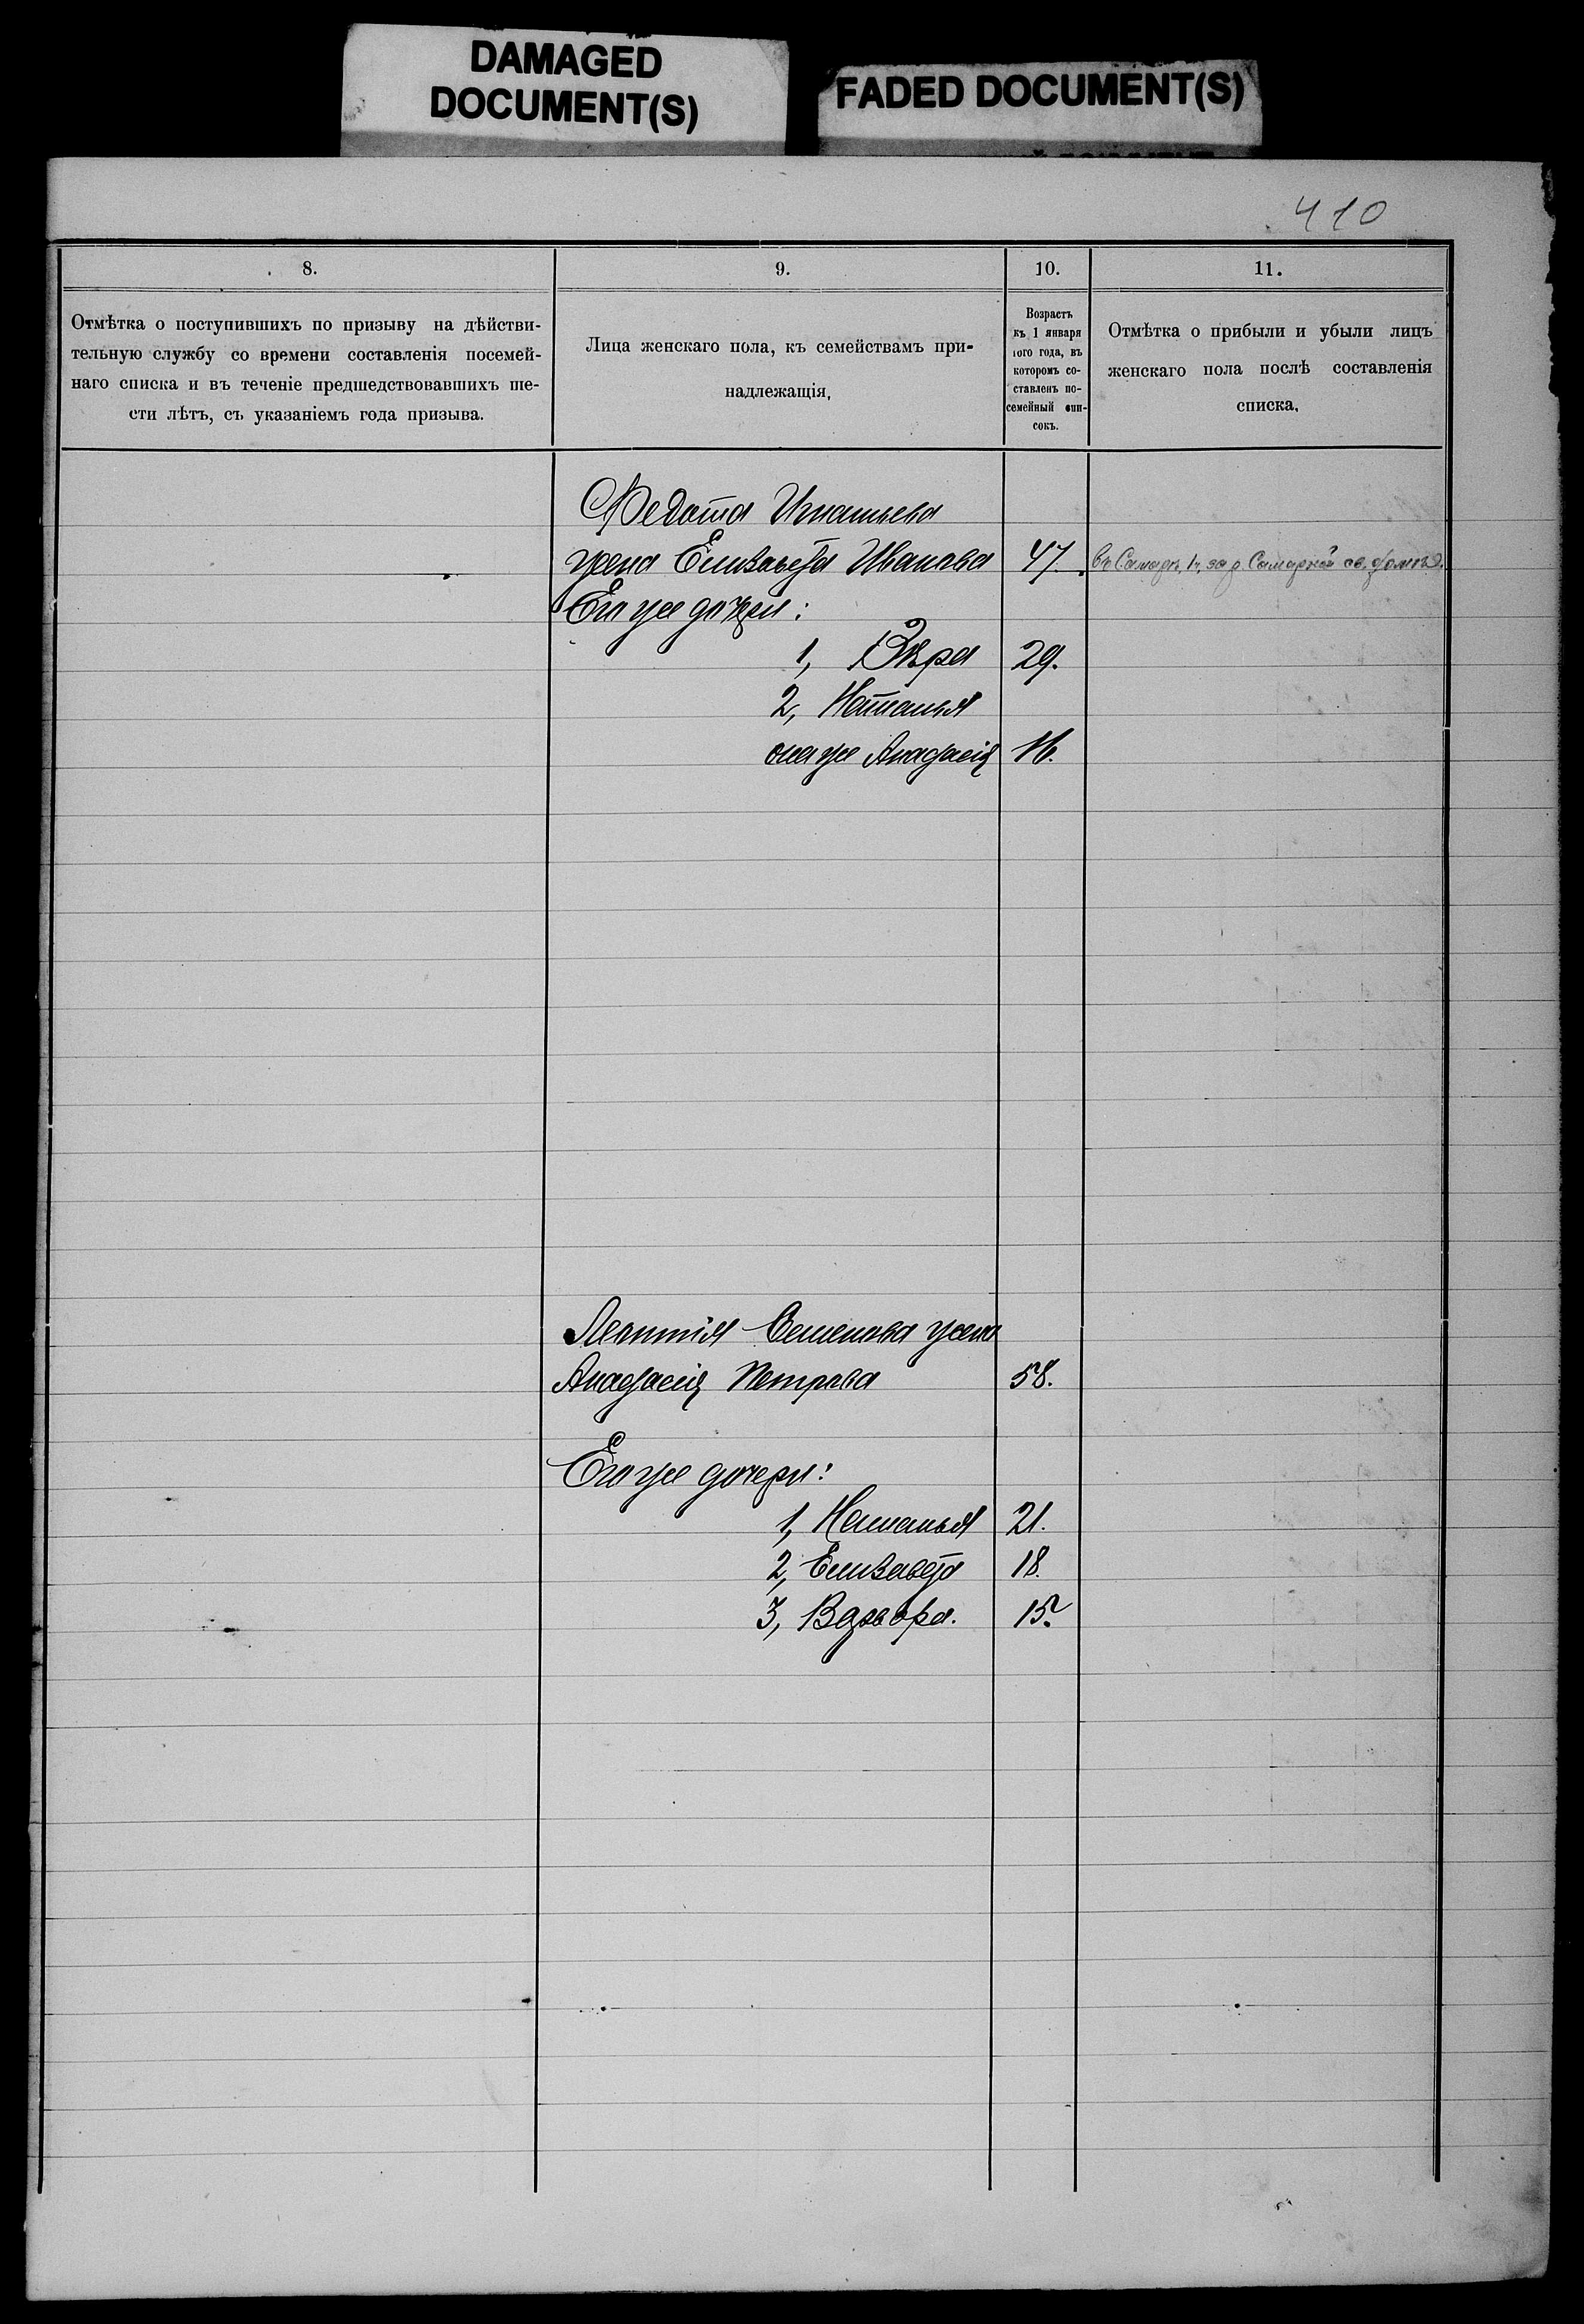 DAMAGED
DOCUMENT(S)
FADED DOCUMENT(S)
410
8.
9.
10.
11.
Отмѣтка о поступившихъ по призыву на дѣйстви-
тельную службу со времени составленія посемей-
наго списка и въ теченіе предшедствовавшихъ ше-
сти лѣтъ, съ указаніемъ года призыва.
Лица женскаго пола, къ семействамъ при-
надлежащія.
Возрастъ
къ 1 января
того года, въ
которомъ со-
ставленъ по-
семейный спи-
сокъ.
Отмѣтка о прибыли и убыли лицъ
женскаго пола послѣ составленія
списка.
Федота Игнатьева
жена Елизавета Иванова 47. въ Самарѣ, за р. Самаркой св. домъ.
Его же дочери:
1, Вѣра 29.
2, Наталья
она же Анафасія 16.
Леонтія Семенова жена
Анафасія Петрова 58.
Его же дочери:
1, Наталья 21.
2, Елизавета 18.
3, Варвара. 15.